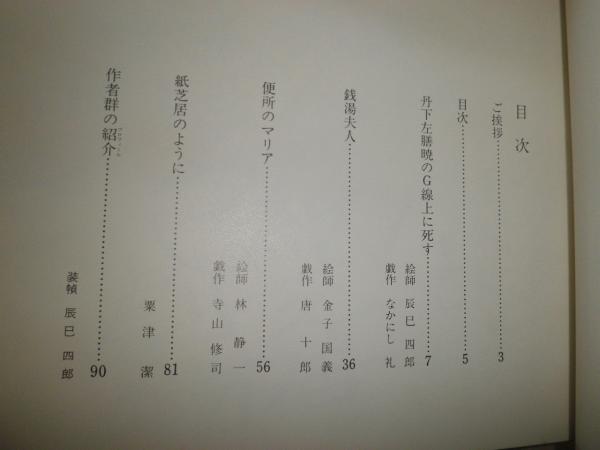 目次
ご挨拶……3
目次……5
丹下左膳暁のG線上に死す……7
絵師 辰巳四郎
戯作 なかにし礼
銭湯夫人……36
絵師 金子国義
戯作 唐十郎
便所のマリア……56
絵師 林静一
戯作 寺山修司
紙芝居のように……81
粟津潔
作者群の紹介……90
装幀 辰巳四郎